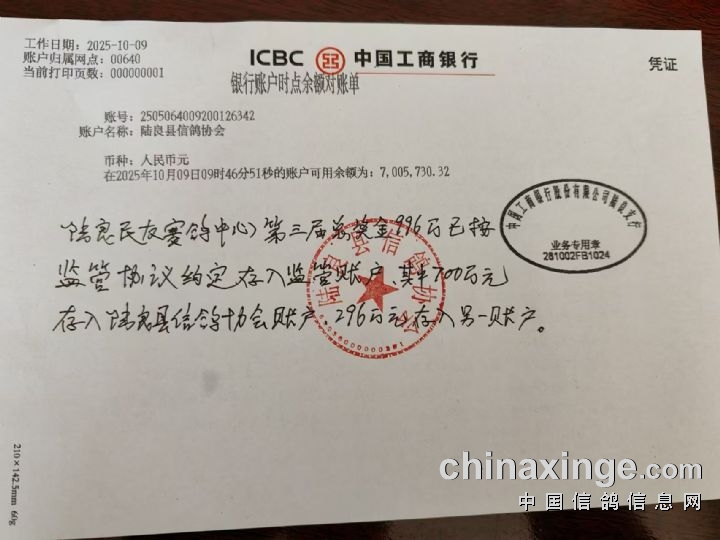 工作日期：2025-10-09
账户归属网点：00640
当前打印页数：000000001
ICBC 中国工商银行
凭证
银行账户时点余额对账单
账号：2505064009200126342
账户名称：陆良县信鸽协会
币种：人民币元
在2025年10月09日09时46分51秒的账户可用余额为：7,005,730.32
中国工商银行股份有限公司陆良支行
业务专用章
281002FB1024
陆良民友赛鸽中心）第三届总奖金996万已按
监管协议约定存入监管账户、其中700万元
存入陆良县信鸽协会账户。296万元存入另一账户。
陆良县信鸽协会
210×142.5mm 60g
chinaxinge.com
中国信鸽信息网